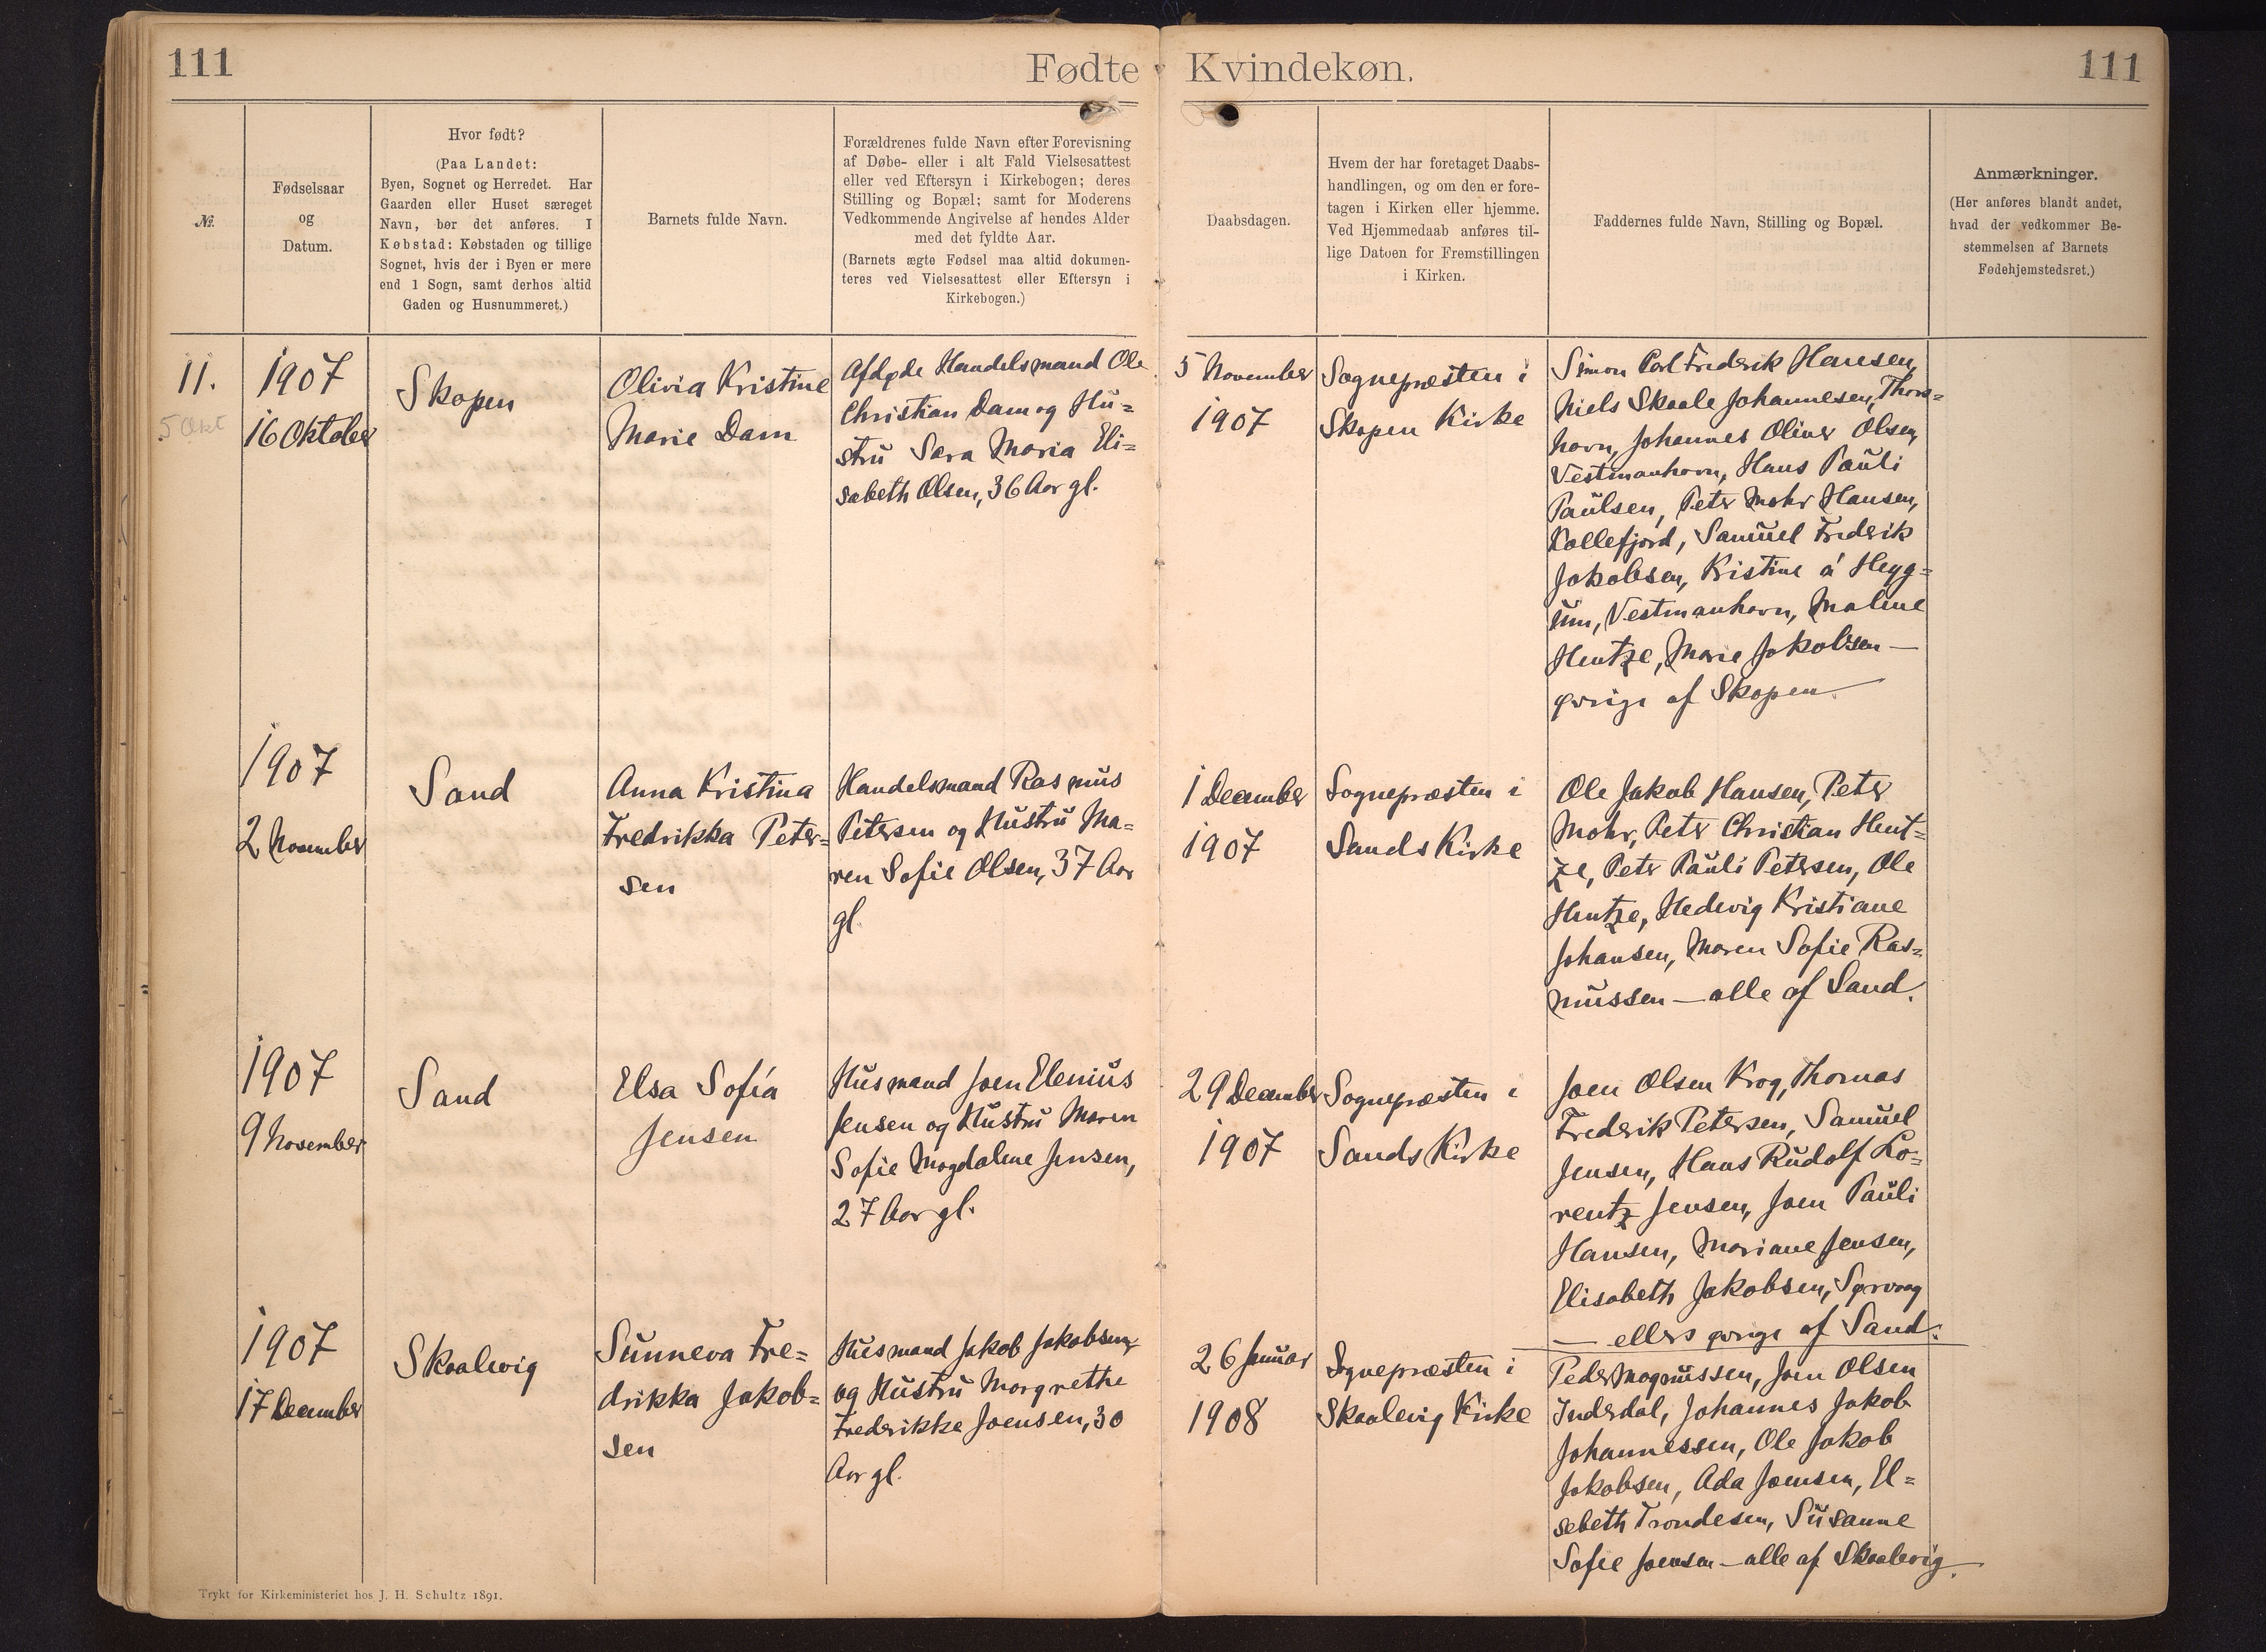 111
Fødte
Kvindekøn.
111
№.
Fødselsaar
og
Datum.
Hvor født?
(Paa Landet:
Byen, Sognet og Herredet. Har
Gaarden eller Huset særeget
Navn, bør det anføres. I
Købstad: Købstaden og tillige
Sognet, hvis der i Byen er mere
end 1 Sogn, samt derhos altid
Gaden og Husnummeret.)
Barnets fulde Navn.
Forældrenes fulde Navn efter Forevisning
af Døbe- eller i alt Fald Vielsesattest
eller ved Eftersyn i Kirkebogen; deres
Stilling og Bopæl; samt for Moderens
Vedkommende Angivelse af hendes Alder
med det fyldte Aar.
(Barnets ægte Fødsel maa altid dokumen-
teres ved Vielsesattest eller Eftersyn i
Kirkebogen.)
Daabsdagen.
Hvem der har foretaget Daabs-
handlingen, og om den er fore-
tagen i Kirken eller hjemme.
Ved Hjemmedaab anføres til-
lige Datoen for Fremstillingen
i Kirken.
Faddernes fulde Navn, Stilling og Bopæl.
Anmærkninger.
(Her anføres blandt andet,
hvad der vedkommer Be-
stemmelsen af Barnets
Fødehjemstedsret.)
11.
5 Okt
1907
16 Oktober
Skopen
Olivia Kristine
Marie Dam
Afdøde Handelsmand Ole
Christian Dam og Hu=
stru Sara Maria Eli=
sabeth Olsen, 36 Aar gl.
5 November
1907
Sognepræsten i
Skopen Kirke
Simon Carl Frederik Hansen,
Niels Skaale Johannesen, Thors=
havn, Johannes Oliver Olsen,
Vestmanhavn, Hans Pauli
Paulsen, Peter Mohr Hansen,
Kollefjord, Samuel Frederik
Jakobsen, Kristine á Heyg=
um, Vestmanhavn, Maline
Hentze, Marie Jakobsen —
øvrige af Skopen.
1907
2 November
Sand
Anna Kristina
Fredrikka Peter=
sen
Handelsmand Rasmus
Petersen og Hustru Ma=
ren Sofie Olsen, 37 Aar
gl.
1 December
1907
Sognepræsten i
Sands Kirke
Ole Jakob Hansen, Peter
Mohr, Peter Christian Hent=
ze, Peter Pauli Petersen, Ole
Hentze, Hedevig Kristiane
Johansen, Maren Sofie Ras=
mussen — alle af Sand.
1907
9 November
Sand
Elsa Sofía
Jensen
Husmand Joen Elenius
Jensen og Hustru Maren
Sofie Magdalene Jensen,
27 Aar gl.
29 December
1907
Sognepræsten i
Sands Kirke
Joen Olsen Krog, Thomas
Frederik Petersen, Samuel
Jensen, Hans Rudolf Lo=
rentz Jensen, Joen Pauli
Hansen, Mariane Jensen,
Elisabeth Jakobsen, Sørvaag
— ellers øvrige af Sand.
1907
17 December
Skaalevig
Sunneva Fre=
drikka Jakob=
sen
Husmand Jakob Jakobsen
og Hustru Margrethe
Frederikke Joensen, 30
Aar gl.
26 Januar
1908
Sognepræsten i
Skaalevig Kirke
Peder Magnussen, Joen Olsen
Inderdal, Johannes Jakob
Johannessen, Ole Jakob
Jakobsen, Ada Joensen, El=
sebeth Trondesen, Susanne
Sofie Joensen — alle af Skaalevig.
Trykt for Kirkeministeriet hos J. H. Schultz 1891.